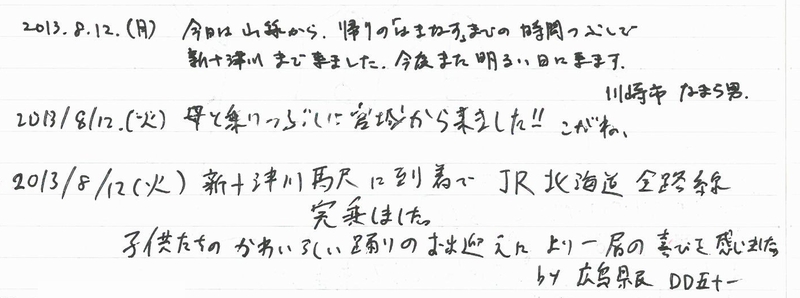 2013.8.12.(月) 今日は山線から、帰りの「はまなす」までの時間つぶしで
新十津川まで来ました。今度また明るい日に来ます。
川崎市 なまら男.
2013/8/12.(火) 母と乗りつぶしに宮城から来ました!! こがね、
2013/8/12(火) 新十津川駅に到着で JR北海道 全路線
完乗しました。
子供たちのかわいらしい踊りのお出迎えにより一層の喜びを感じました。
by 広島県民 DD五十一